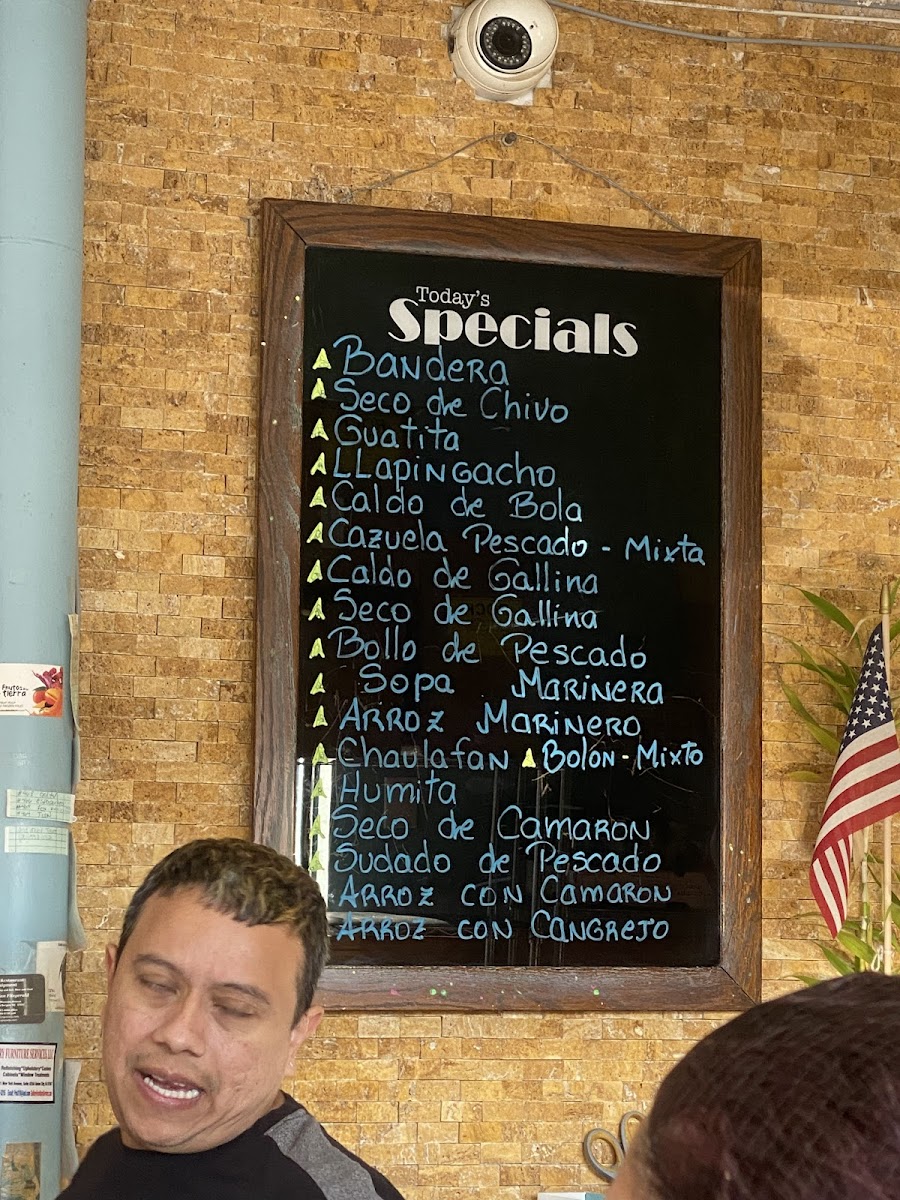 Today's
Specials
Bandera
Seco de Chivo
Guatita
LLapingacho
Caldo de Bola
Cazuela Pescado - Mixta
Caldo de Gallina
Seco de Gallina
Bollo de Pescado
Sopa Marinera
Arroz Marinero
Chaulafan Bolon - Mixto
Humita
Seco de Camaron
Sudado de Pescado
Arroz con Camaron
Arroz con Cangrejo
Frutos
tierra
FURNITURE SERVICES, LLC